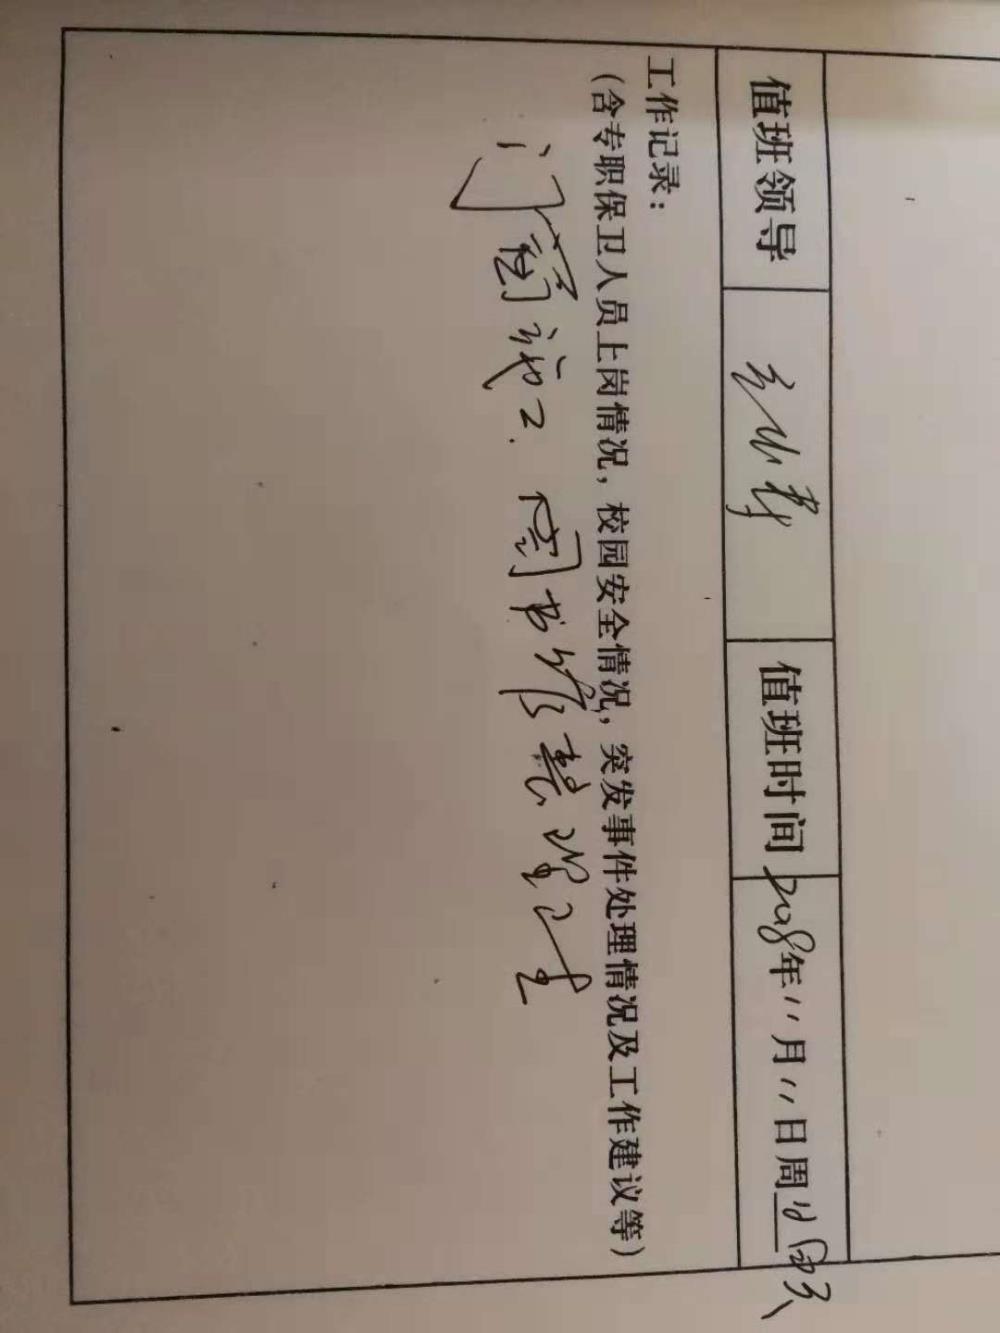 值班领导 值班时间 2018年11月11日周日
工作记录：
（含专职保卫人员上岗情况，校园安全情况，突发事件处理情况及工作建议等）
门窗施工．图书馆整理卫生